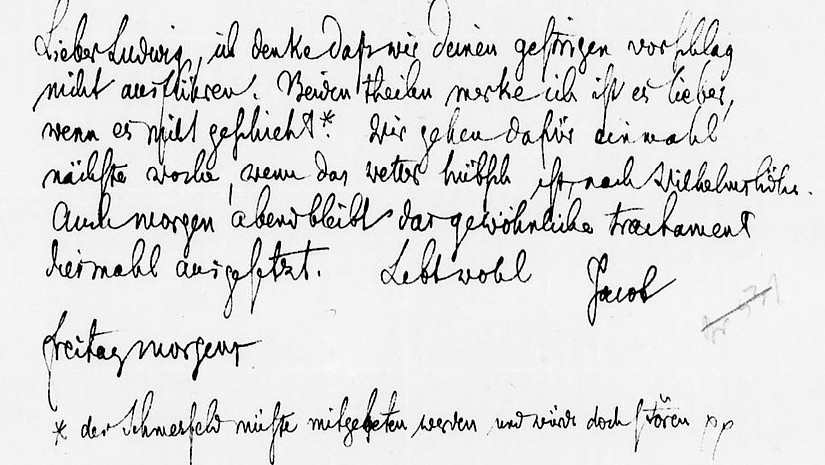 Lieber Ludwig, ich denke daß wir deinen gestrigen vorschlag
nicht ausführen. Beiden theilen merke ich ist es lieber,
wenn es nicht geschieht*. Wir gehen dafür einmahl
nächste woche, wenn das wetter hübsch ist, nach Wilhelmshöhe.
Auch morgen abend bleibt das gewöhnliche tractament
diesmahl ausgesetzt. Lebtwohl Jacob
freitag morgens
* der Schmerfeld müste mitgebeten werden und würde doch stören pp